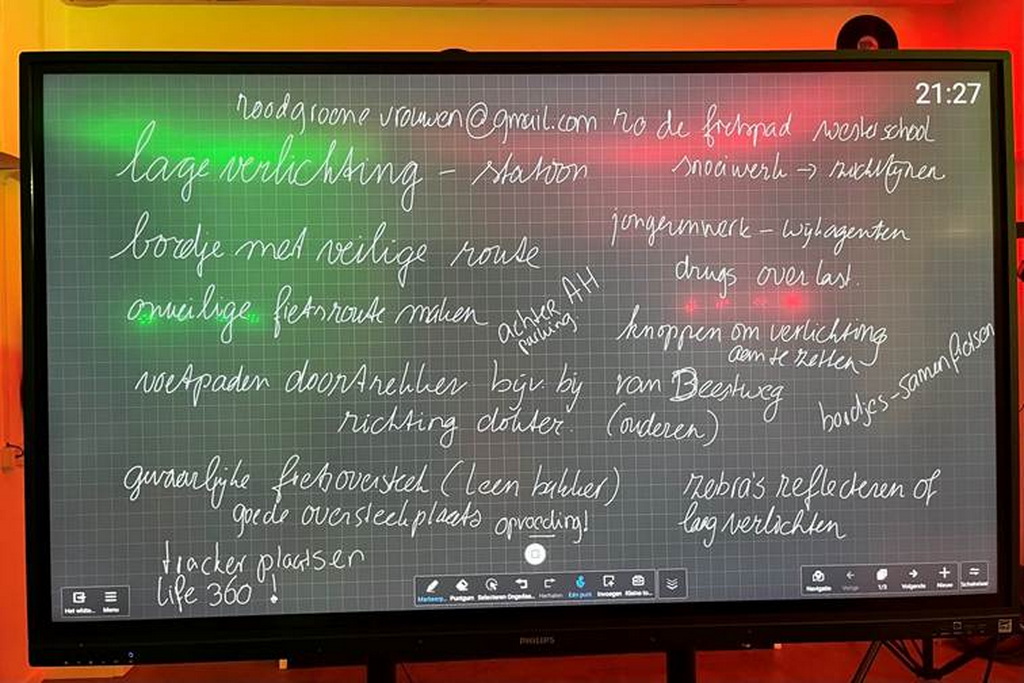 21:27
roodgroene vrouwen@gmail.com
ro de fietspad westerschool
lage verlichting - station
snoeiwerk → zichtlijnen
bordje met veilige route
jongerenwerk - wijkagenten
drugs overlast.
onveilige fietsroute maken
achter AH
parking.
knoppen om verlichting
aan te zetten
bordjes - samen fietsen
voetpaden doortrekken bijv. bij van Beestweg
richting dokter. (ouderen)
gevaarlijke fietsoversteek (leen bakker)
goede oversteekplaats opvoeding!
zebra's reflecteren of
laag verlichten
tracker plaatsen
life 360!
Het white...
Menu
Puntgum
Selecteren
Herhalen
Eén punt
Invoegen
Kleine to...
Navigatie
1/3
Volgende
Nieuw
PHILIPS